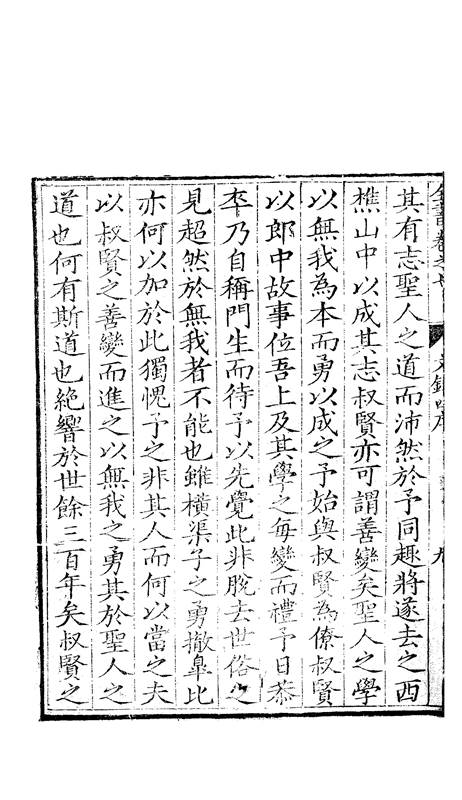 全書卷之七
文錄四序
九
其有志聖人之道而沛然於予同趣將遂去之西
樵山中以成其志叔賢亦可謂善變矣聖人之學
以無我為本而勇以成之予始與叔賢為僚叔賢
以郎中故事位吾上及其學之每變而禮予日恭
卒乃自稱門生而待予以先覺此非脫去世俗之
見超然於無我者不能也雖橫渠子之勇撤臯比
亦何以加於此獨愧予之非其人而何以當之夫
以叔賢之善變而進之以無我之勇其於聖人之
道也何有斯道也絕響於世餘三百年矣叔賢之